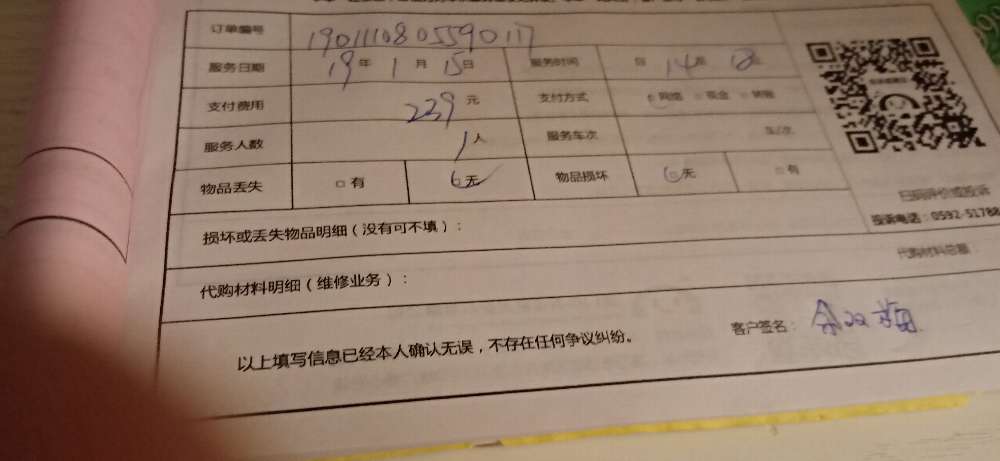 订单编号 1901110805590117
服务日期 19年 1月 15日 服务时间 自 14点
支付费用 239元 支付方式 网络 现金 转账
服务人数 1人 服务车次 车/次
物品丢失 □有 无 物品损坏 □无 □有
扫码评价或投诉
损坏或丢失物品明细(没有可不填): 投诉电话:0592-51788
代购材料明细(维修业务): 代购材料总额:
以上填写信息已经本人确认无误,不存在任何争议纠纷。 客户签名: